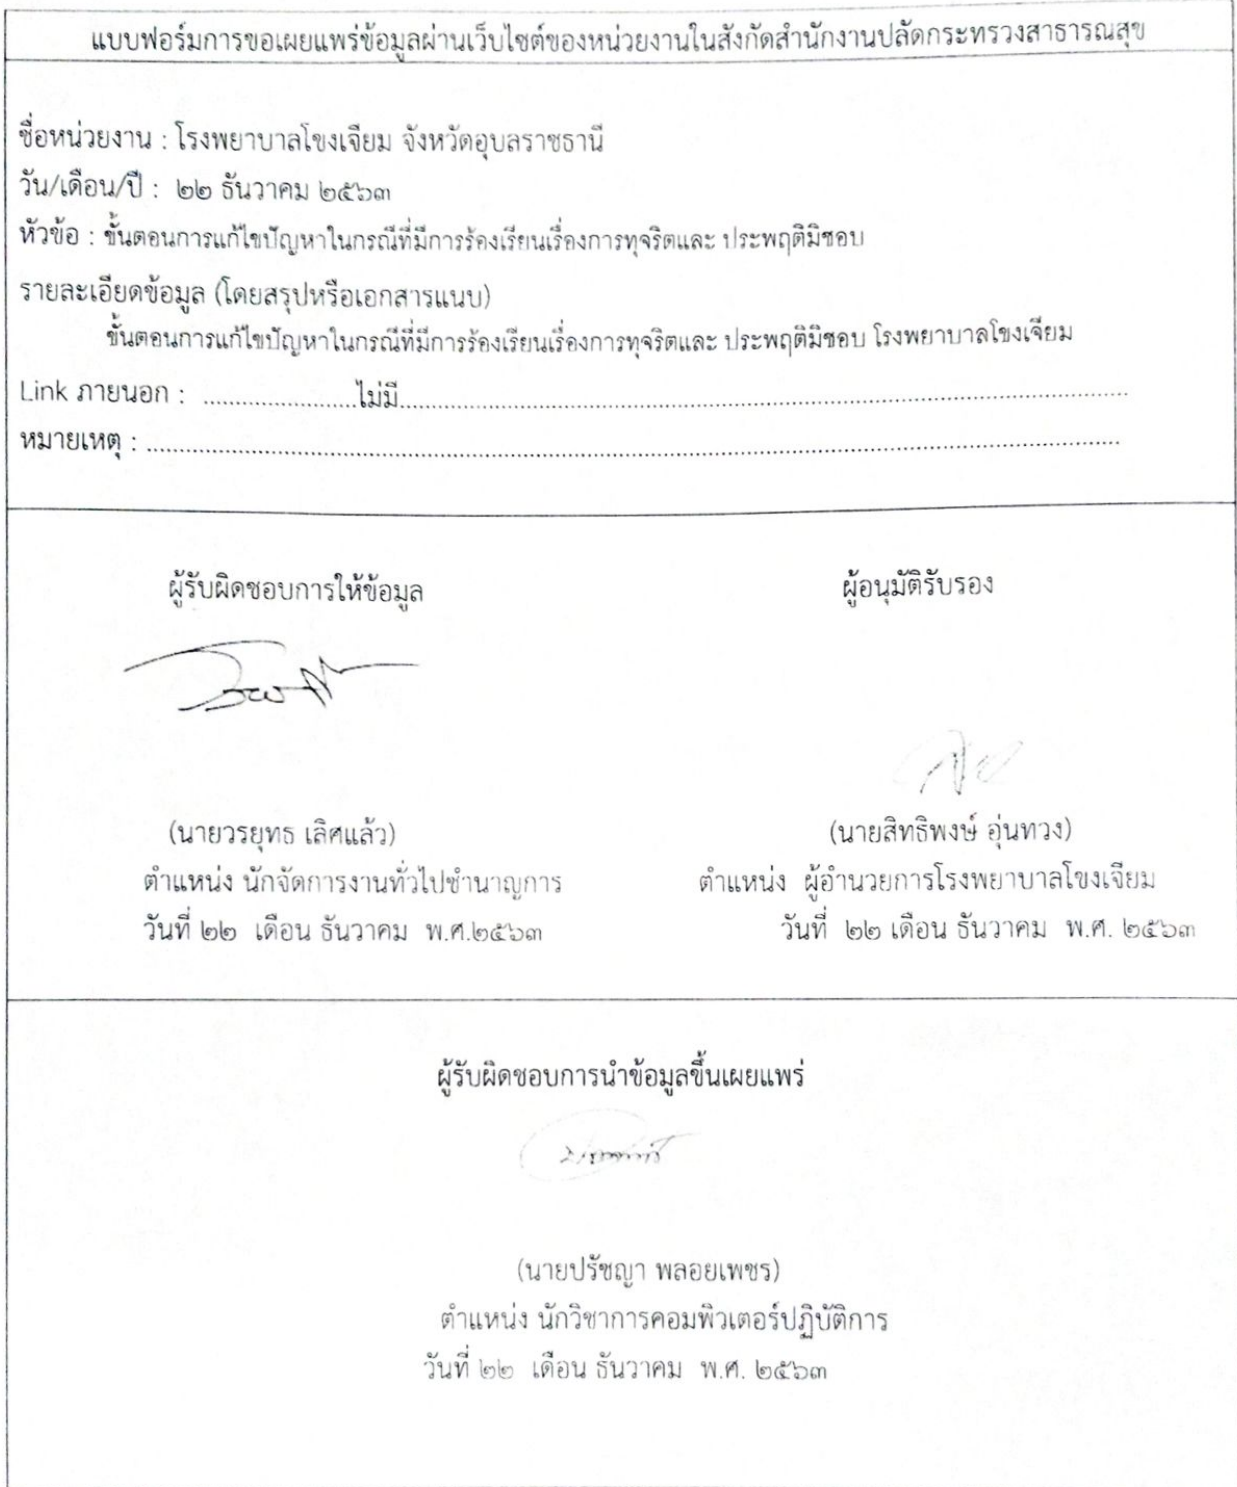 แบบฟอร์มการขอเผยแพร่ข้อมูลผ่านเว็บไซต์ของหน่วยงานในสังกัดสำนักงานปลัดกระทรวงสาธารณสุข
ชื่อหน่วยงาน : โรงพยาบาลโขงเจียม จังหวัดอุบลราชธานี
วัน/เดือน/ปี : ๒๒ ธันวาคม ๒๕๖๓
หัวข้อ : ขั้นตอนการแก้ไขปัญหาในกรณีที่มีการร้องเรียนเรื่องการทุจริตและ ประพฤติมิชอบ
รายละเอียดข้อมูล (โดยสรุปหรือเอกสารแนบ)
ขั้นตอนการแก้ไขปัญหาในกรณีที่มีการร้องเรียนเรื่องการทุจริตและ ประพฤติมิชอบ โรงพยาบาลโขงเจียม
Link ภายนอก : .......................ไม่มี..............................................................................................................
หมายเหตุ : ....................................................................................................................................................
ผู้รับผิดชอบการให้ข้อมูล
ผู้อนุมัติรับรอง
(นายวรยุทธ เลิศแล้ว)
(นายสิทธิพงษ์ อุ่นทวง)
ตำแหน่ง นักจัดการงานทั่วไปชำนาญการ
ตำแหน่ง ผู้อำนวยการโรงพยาบาลโขงเจียม
วันที่ ๒๒ เดือน ธันวาคม พ.ศ.๒๕๖๓
วันที่ ๒๒ เดือน ธันวาคม พ.ศ. ๒๕๖๓
ผู้รับผิดชอบการนำข้อมูลขึ้นเผยแพร่
(นายปรัชญา พลอยเพชร)
ตำแหน่ง นักวิชาการคอมพิวเตอร์ปฏิบัติการ
วันที่ ๒๒ เดือน ธันวาคม พ.ศ. ๒๕๖๓